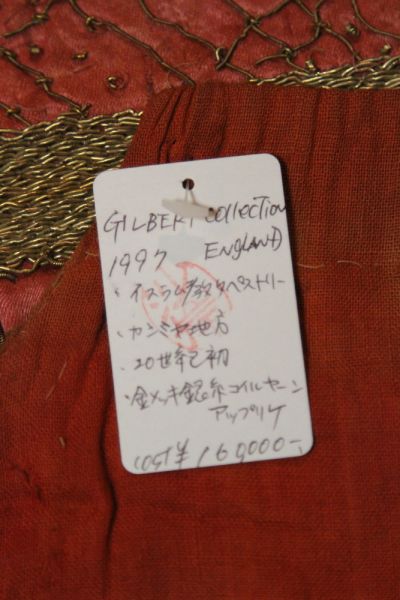 GILBERT collection
1997 ENGLAND
・イスラム教タペストリー
・カシミヤ地方
・20世紀初
・金メッキ銀糸コイルヤーン
アップリケ
COST ¥160000-